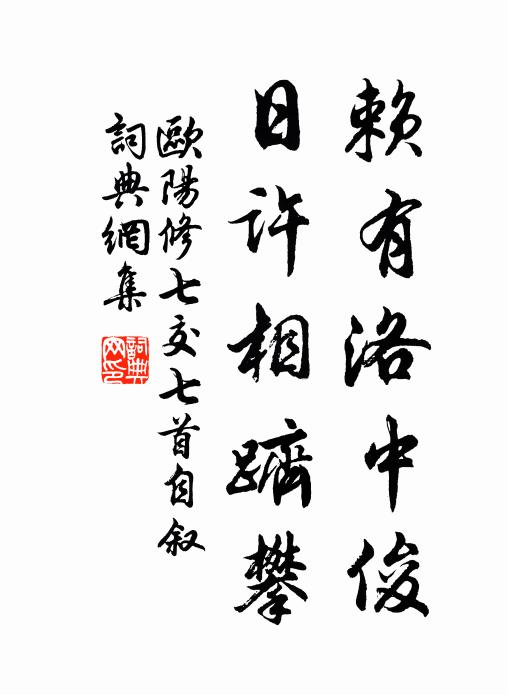 賴有洛中俊
日許相躋攀
歐陽修七交七首自叙
詞典網集
詞典网印